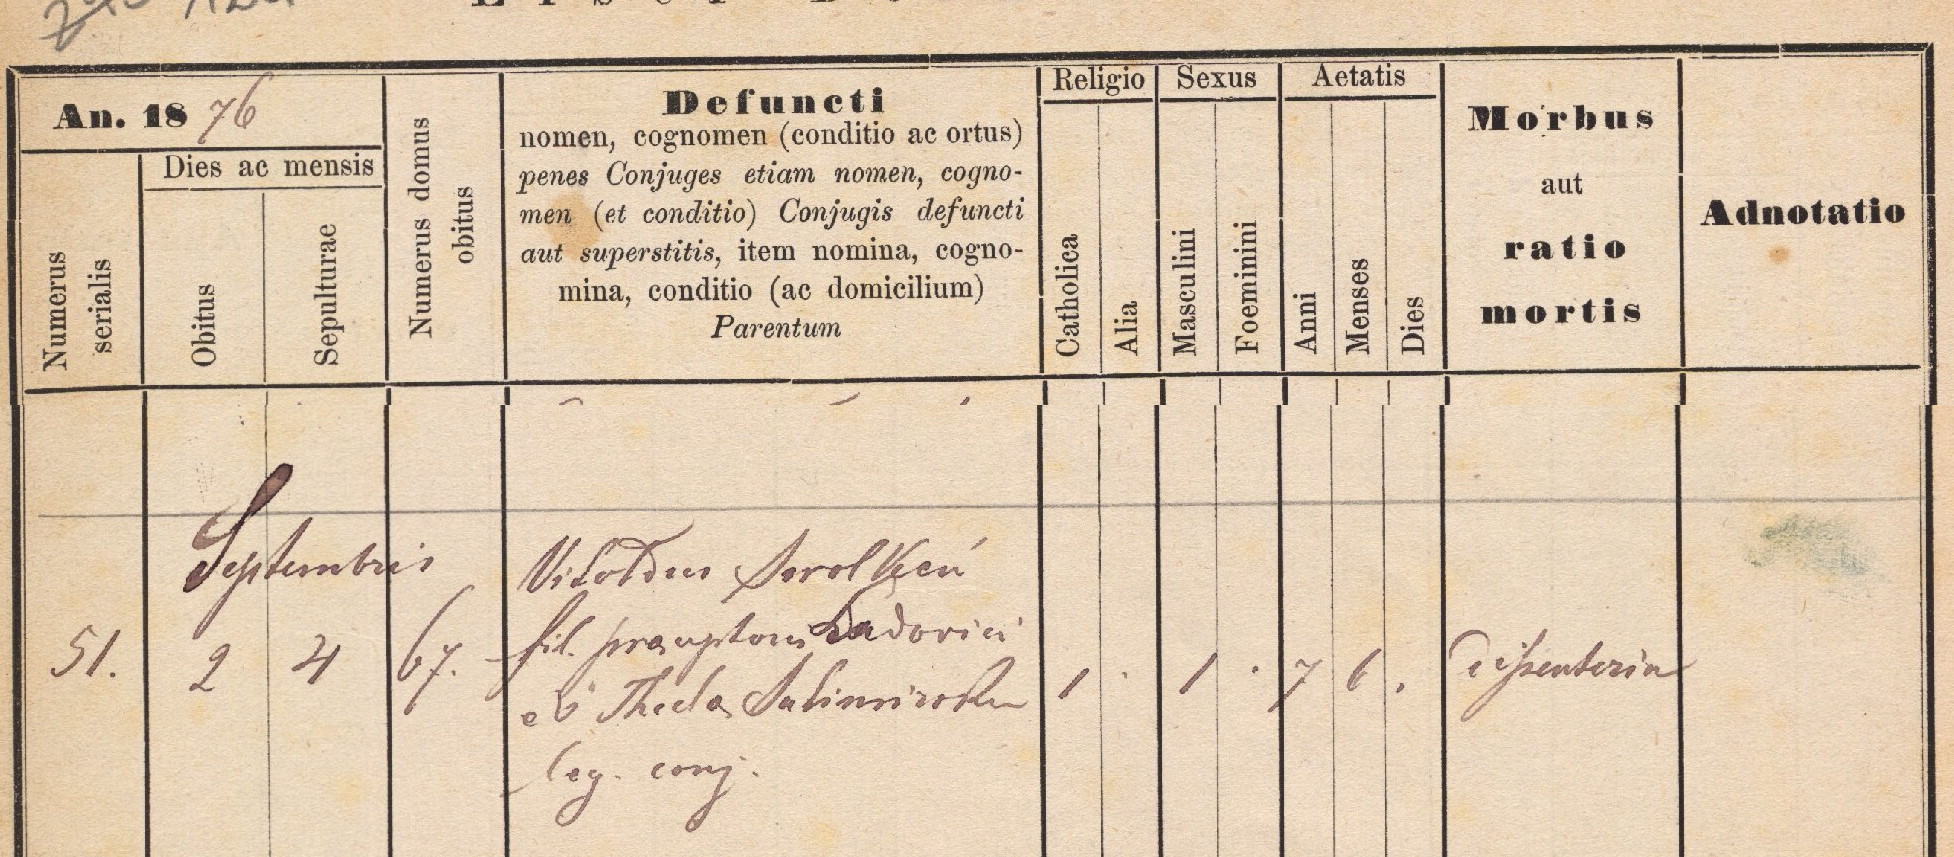 An. 18 76
Dies ac mensis
Numerus serialis
Obitus
Sepulturae
Numerus domus obitus
Defuncti
nomen, cognomen (conditio ac ortus)
penes Conjuges etiam nomen, cogno-
men (et conditio) Conjugis defuncti
aut superstitis, item nomina, cogno-
mina, conditio (ac domicilium)
Parentum
Religio
Catholica
Alia
Sexus
Masculini
Foeminini
Aetatis
Anni
Menses
Dies
Morbus
aut
ratio
mortis
Adnotatio
Septembris
51. 2 4 67.
Vitoldus
fil. Ludovici
et Thecla
leg. conj.
1 . 1 . 7 6 .